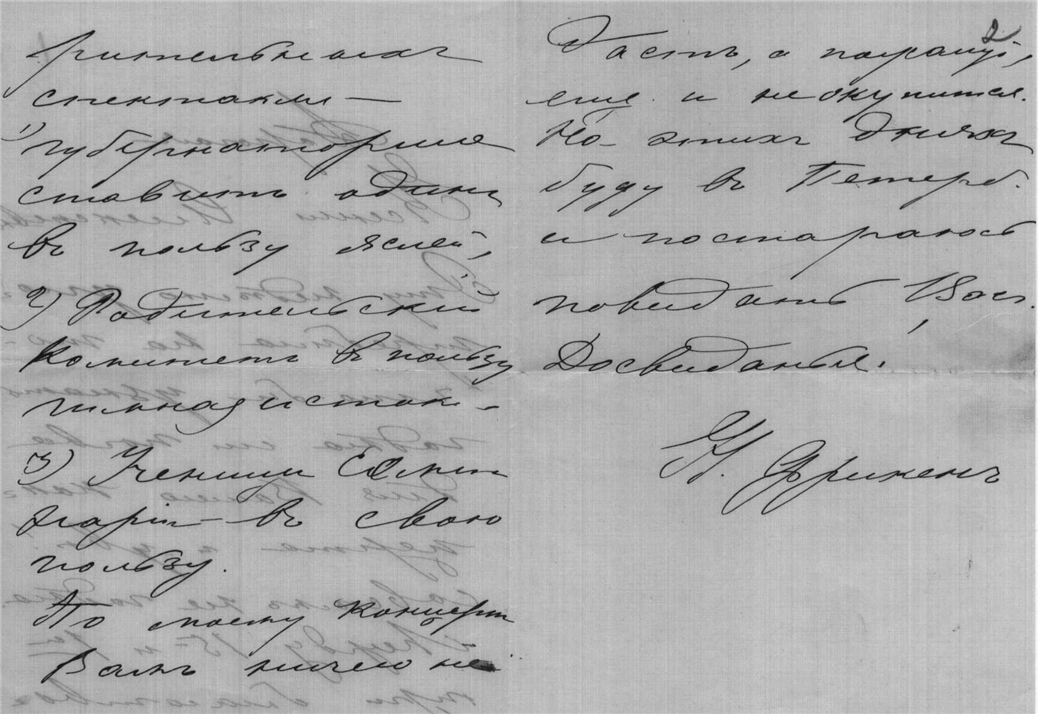 рительных
спектакля —
1) губернаторша
ставитъ одинъ
въ пользу яслей,
2) Родительскiй
Комитетъ въ пользу
гимназисток.
3) Ученицы
въ свою
пользу.
По моему концертъ
Вамъ ничего не
2
дастъ, а пожалуй,
еще и не окупится.
На этихъ дняхъ
буду въ Петерб.
и постараюсь
повидать Васъ.
Досвиданья.
Н. Фрикенъ